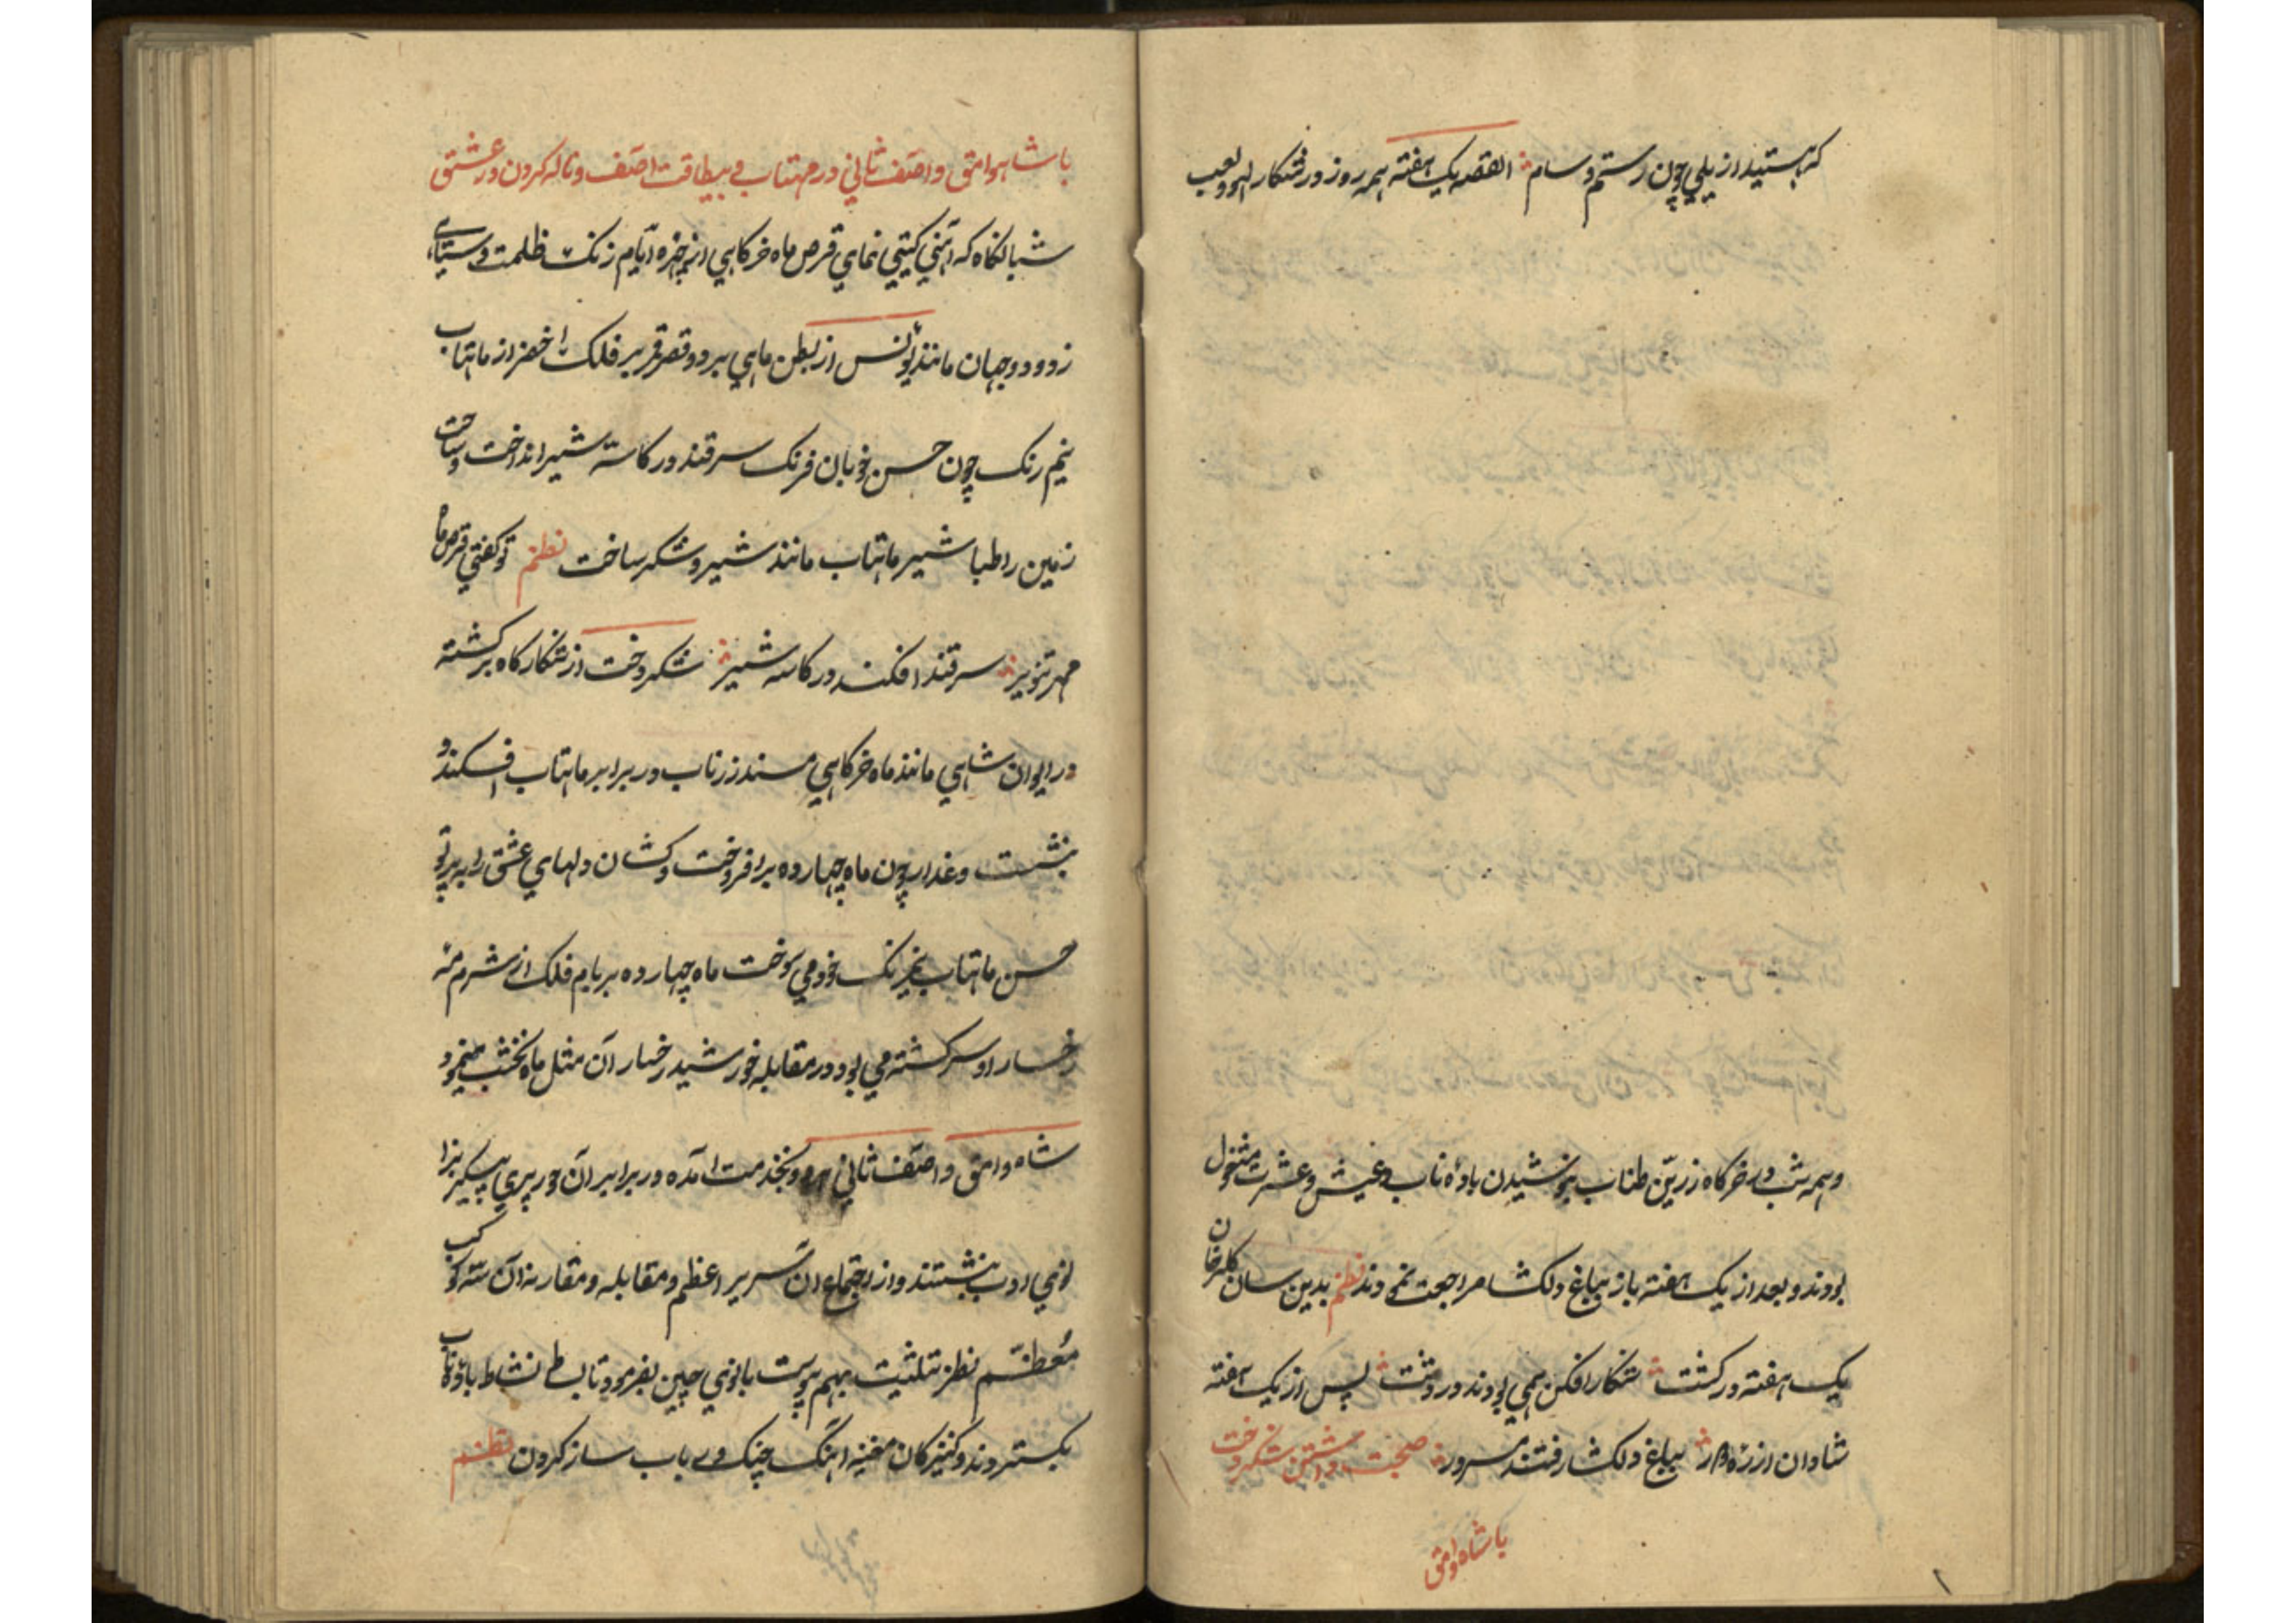 که هستید از یلی چون رستم و سام القصه یک هفته همه روز در شکار لهو و لعب
و همه شب در خرگاه زرین طناب بنوشیدن باده ناب و عیش و عشرت مشغول
بودند و بعد از یک هفته باز بباغ دلکشا مراجعت نمودند نظم بدین سان گلرخان
یک هفته در گشت شکار افکن همی بودند در دشت پس از یک هفته
شادان از ره دور بباغ دلکشا رفتند مسرور صحبت داشتن شکردخت
با شاه وامق
با شاه وامق و آصف ثانی در مهتاب و بیطاقت آصف و ناله کردن در عشق
شبانگاه که آئینه گیتی نمای قرص ماه خرگاهی از چهره ایام زنگ ظلمت و سیاهی
زدود و جهان مانند یونس از بطن ماهی برد و قصر قمر بر فلک اخضر از ماهتاب
نیم رنگ چون حسن خوبان فرنگ سر قند در کاسه شیر انداخت و ساحت
زمین را طباشیر ماهتاب مانند شیر و شکر ساخت نظم تو گفتی قرص ماه
مهر تنویر سر قند افکند در کاسه شیر شکردخت از شکارگاه برگشته
در ایوان شاهی مانند ماه خرگاهی مسند زرتاب در برابر ماهتاب افکنده
بنشست و عذار چون ماه چهارده برافروخت و کتان دلهای عشق را به پرتو
حسن ماهتاب نیرنگ خود می سوخت ماه چهارده بر بام فلک از شرم مه
رخسار او سرگشته می بود و در مقابله خورشید رخسار آن مثل ماه نخشب مینمود
شاه وامق و آصف ثانی هر دو بخدمت آمده در برابر آن حور پری پیکر بزا
نوی ادب بنشستند و از اجتماع آن سریر اعظم و مقابله و مقارنه آن سه کوکب
معظم نظر تثلیث بهم پیوست بانوی چین بفرمود تا بساط نشاط باده ناب
بگستردند و کنیزکان مغنیه آهنگ چنگ و رباب ساز کردن نظم